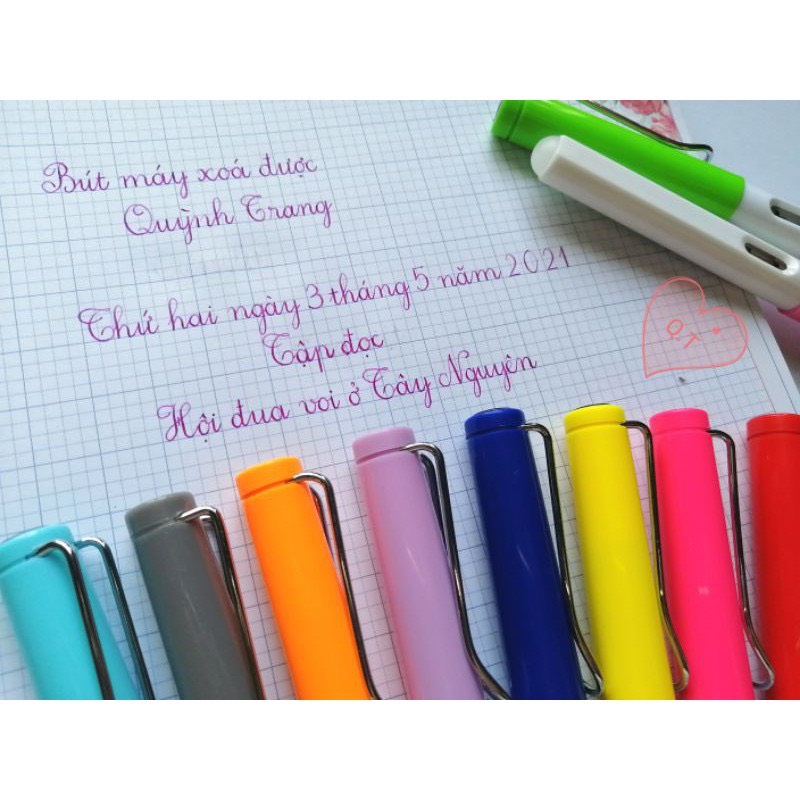 Bút máy xoá được
Quỳnh Trang
Thứ hai ngày 3 tháng 5 năm 2021
Tập đọc
Hội đua voi ở Tây Nguyên
QT